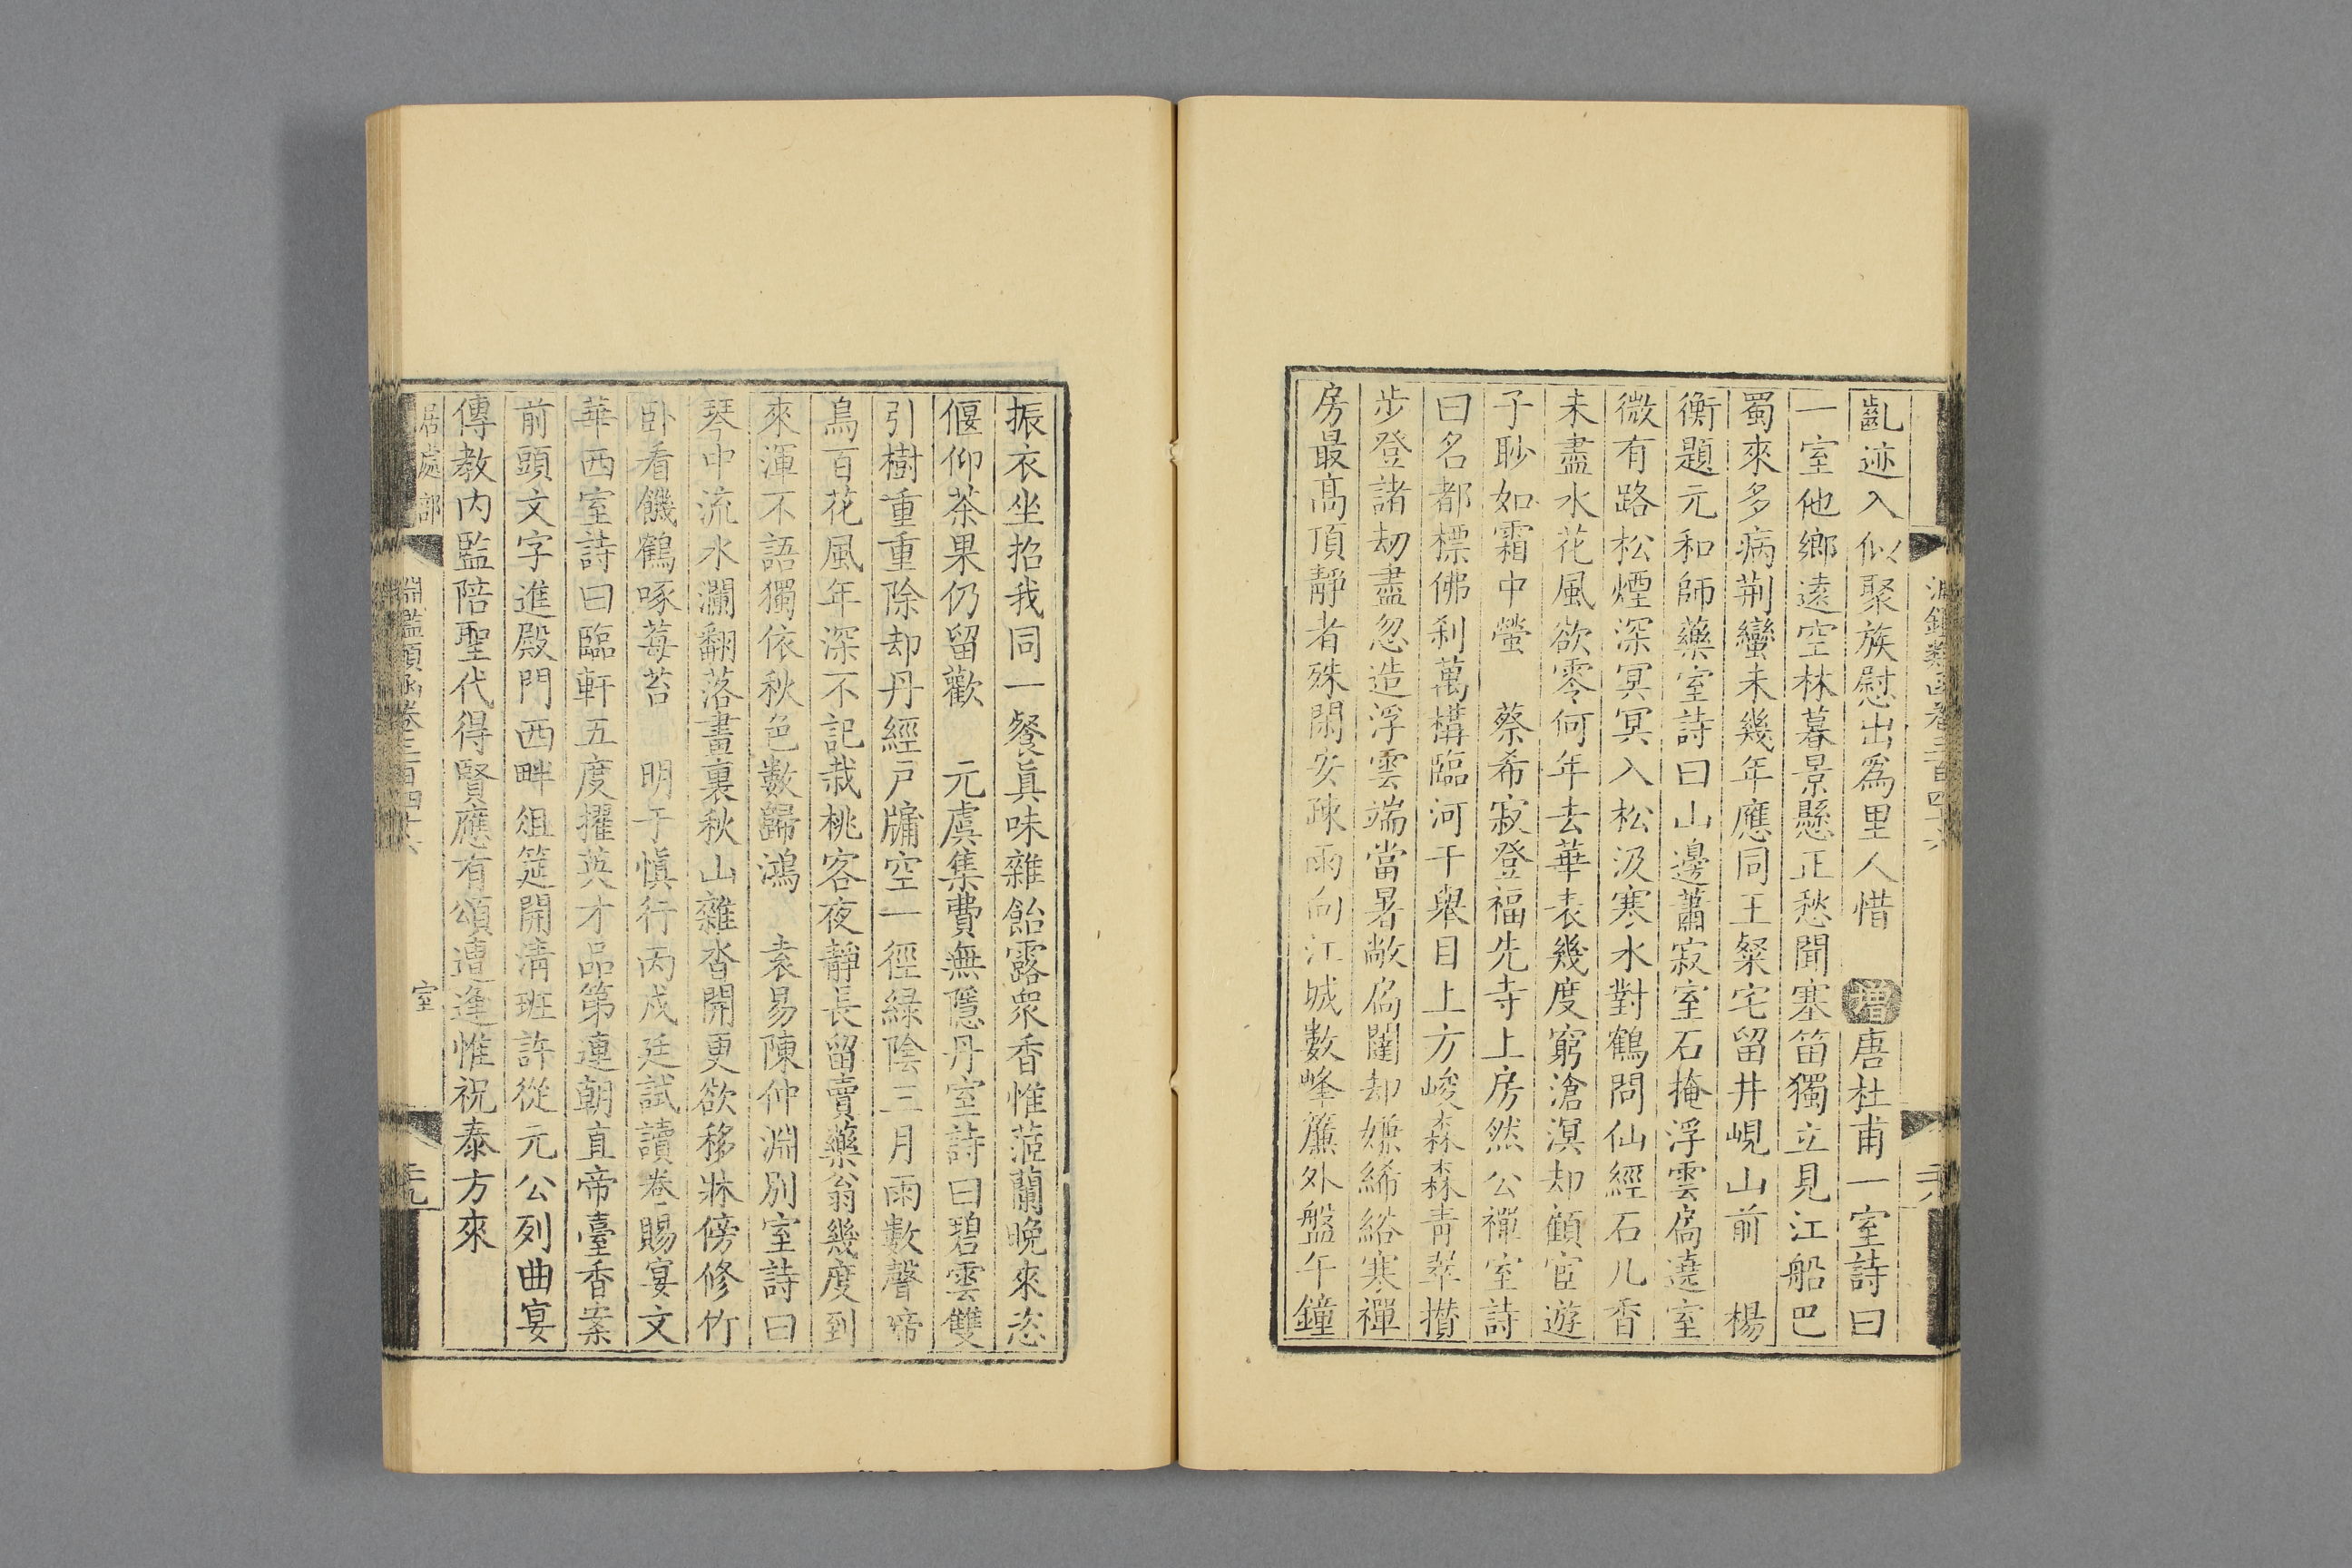 淵鑑類函卷三百四十六
亂迹入似聚族慰出爲里人惜　增唐杜甫一室詩曰
一室他鄉遠空林暮景懸正愁聞塞笛獨立見江船巴
蜀來多病荆蠻未幾年應同王粲宅留井峴山前　楊
衡題元和師藥室詩曰山邊蕭寂室石掩浮雲扃遶室
微有路松煙深冥冥入松汲寒水對鶴問仙經石几香
未盡水花風欲零何年去華表幾度窮滄溟却顧宦遊
子眇如霜中螢　蔡希寂登福先寺上房然公禪室詩
曰名都標佛刹萬構臨河干舉目上方峻森森青翠攢
步登諸劫盡忽造浮雲端當暑敞扃闥却嫌絺綌寒禪
房最高頂靜者殊閑安疎雨向江城數峰簾外盤午鐘
振衣坐招我同一餐眞味雜飴露衆香惟茝蘭晚來恣
偃仰茶果仍留歡　元虞集費無隱丹室詩曰碧雲雙
引樹重重除却丹經戸牖空一徑綠陰三月雨數聲啼
鳥百花風年深不記栽桃客夜靜長留賣藥翁幾度到
來渾不語獨依秋色數歸鴻　袁易陳仲淵別室詩曰
琴中流水瀾翻落畫裏秋山雜沓開更欲移牀傍修竹
卧看饑鶴啄莓苔　明于愼行丙戍廷試讀卷賜宴文
華西室詩曰臨軒五度擢英才品第連朝直帝臺香案
前頭文字進殿門西畔俎筵開清班許從元公列曲宴
傳教内監陪聖代得賢應有頌遭逢惟祝泰方來
居處部　室
淵鑑類函卷三百四十六